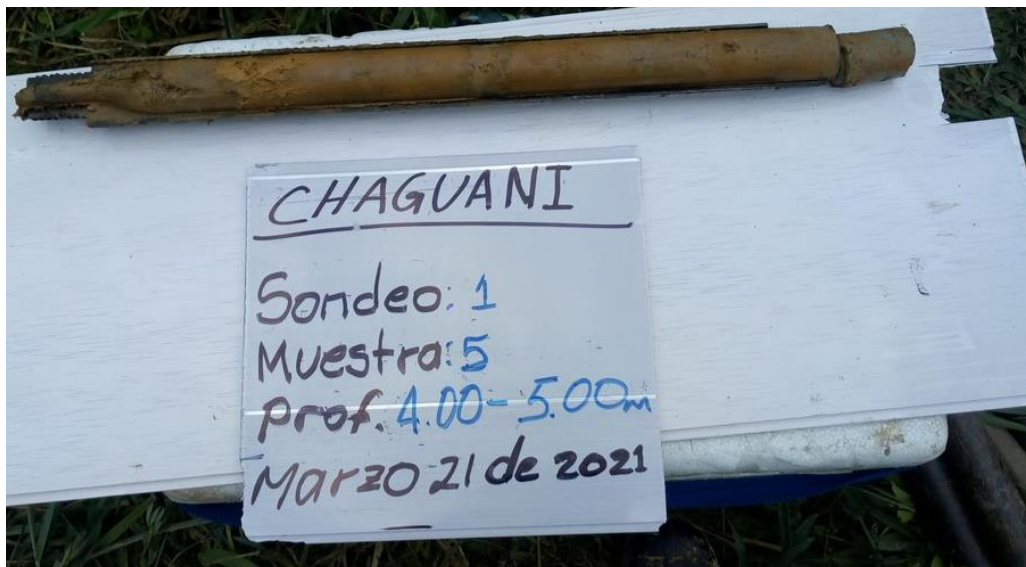 CHAGUANI
Sondeo: 1
Muestra: 5
Prof. 4.00-5.00m
Marzo 21 de 2021